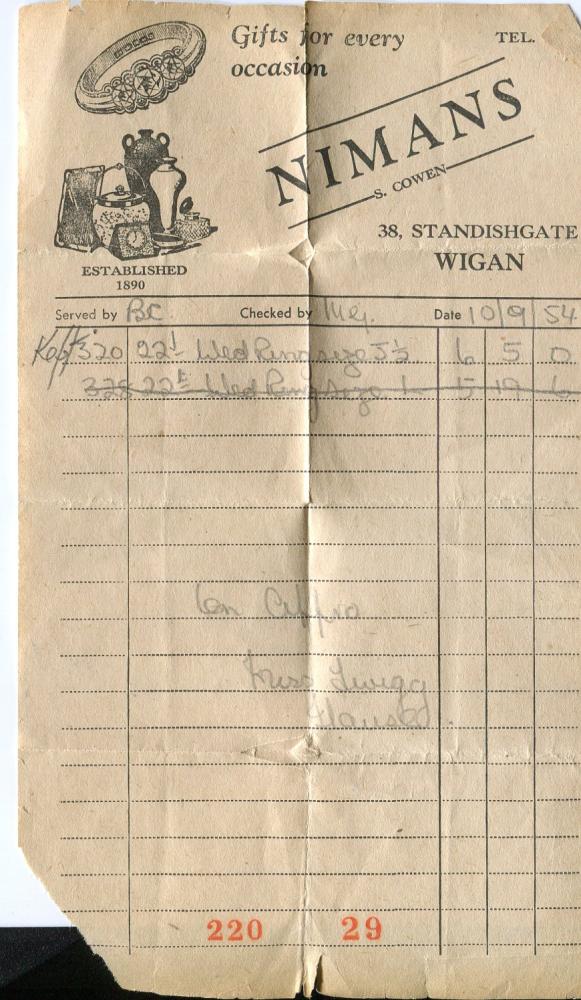 Gifts for every
occasion
TEL.
NIMANS
S. COWEN
38, STANDISHGATE
WIGAN
ESTABLISHED
1890
Served by BC Checked by Date 10/9/54
Kept 320 22ct Wed Ring size J½ 6 5 0
328 22ct Wed Ring size L 5 19 6
On Appro
Miss Twigg
220 29